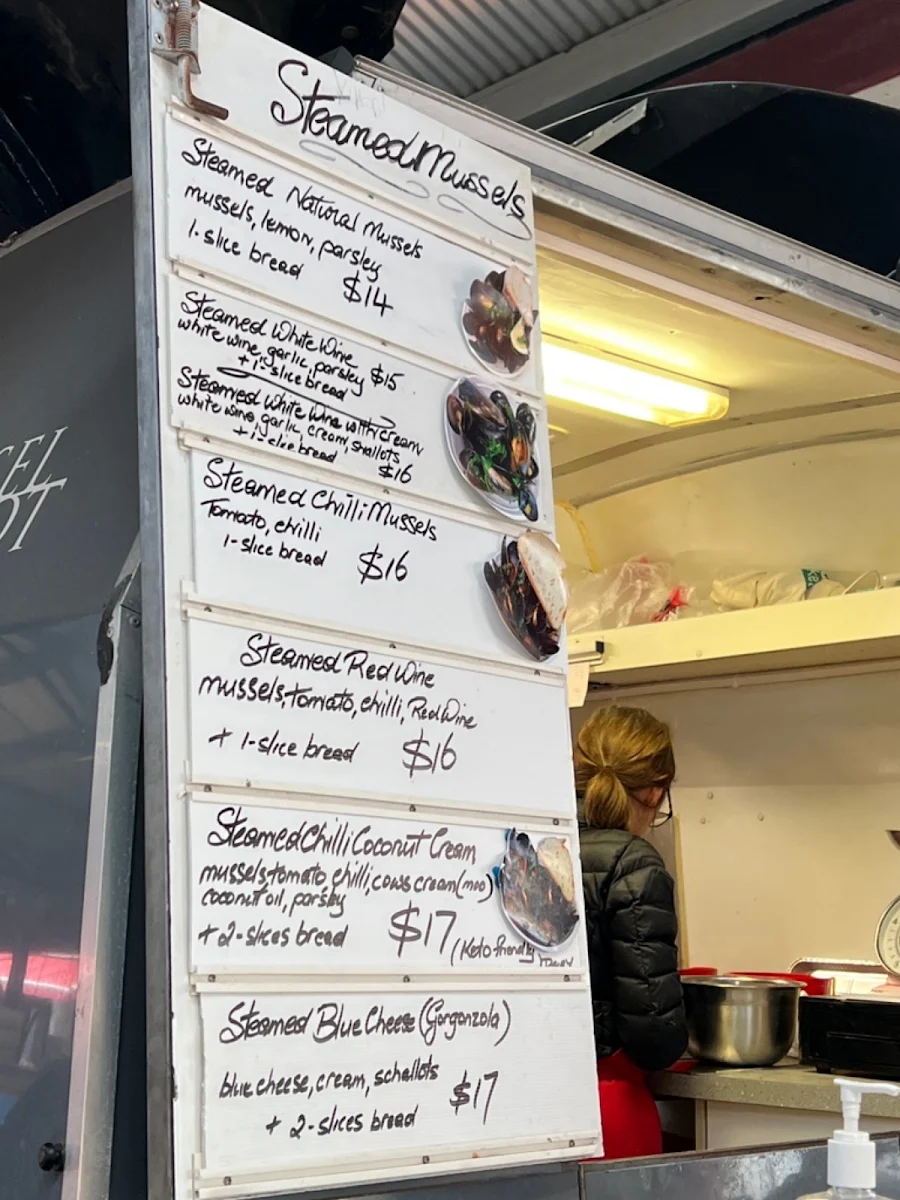 Steamed Mussels
Steamed Natural Mussels
mussels, lemon, parsley
1-slice bread
$14
Steamed White Wine
white wine, garlic, parsley $15
+ 1-slice bread
Steamed White Wine with cream
white wine, garlic, cream, shallots
+ 1-slice bread
$16
Steamed Chilli Mussels
Tomato, chilli
1-slice bread $16
Steamed Red Wine
mussels, tomato, chilli, Red Wine
+ 1-slice bread $16
Steamed Chilli Coconut Cream
mussels, tomato chilli, cows cream (moo)
coconut oil, parsley
+ 2-slices bread $17 (Keto-friendly
Steamed Blue Cheese (Gorgonzola)
blue cheese, cream, schallots
+ 2-slices bread $17